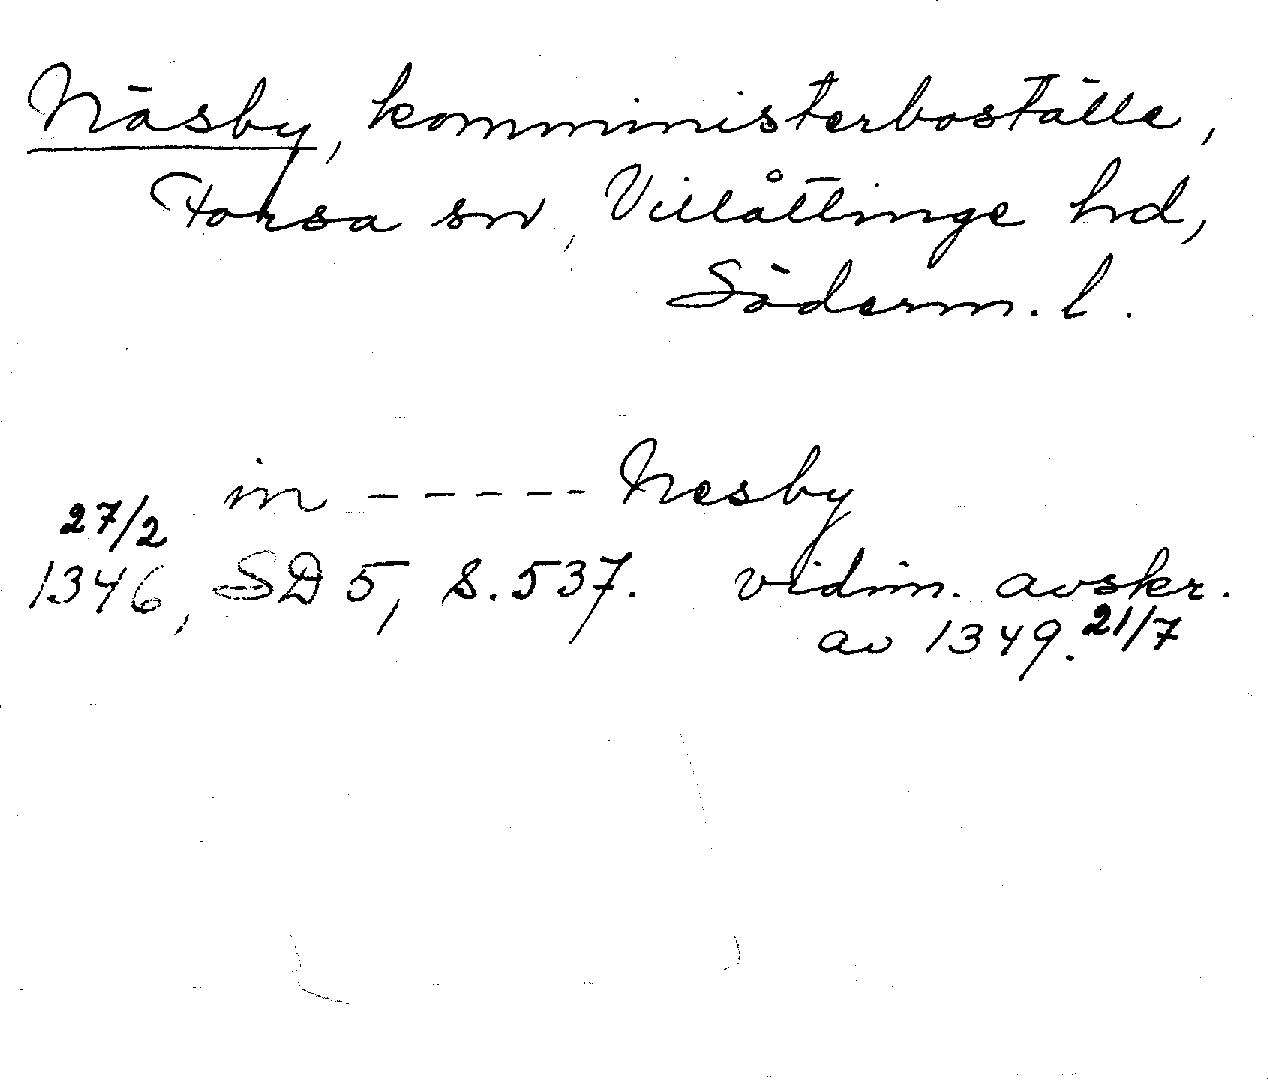 Näsby, komministerboställe,
Forsa sn, Villåttinge hd,
Söderm. l.
in - - - - - Nesby
27/2
1346, SD 5, s. 537. vidim. avskr.
av 1349. 21/7